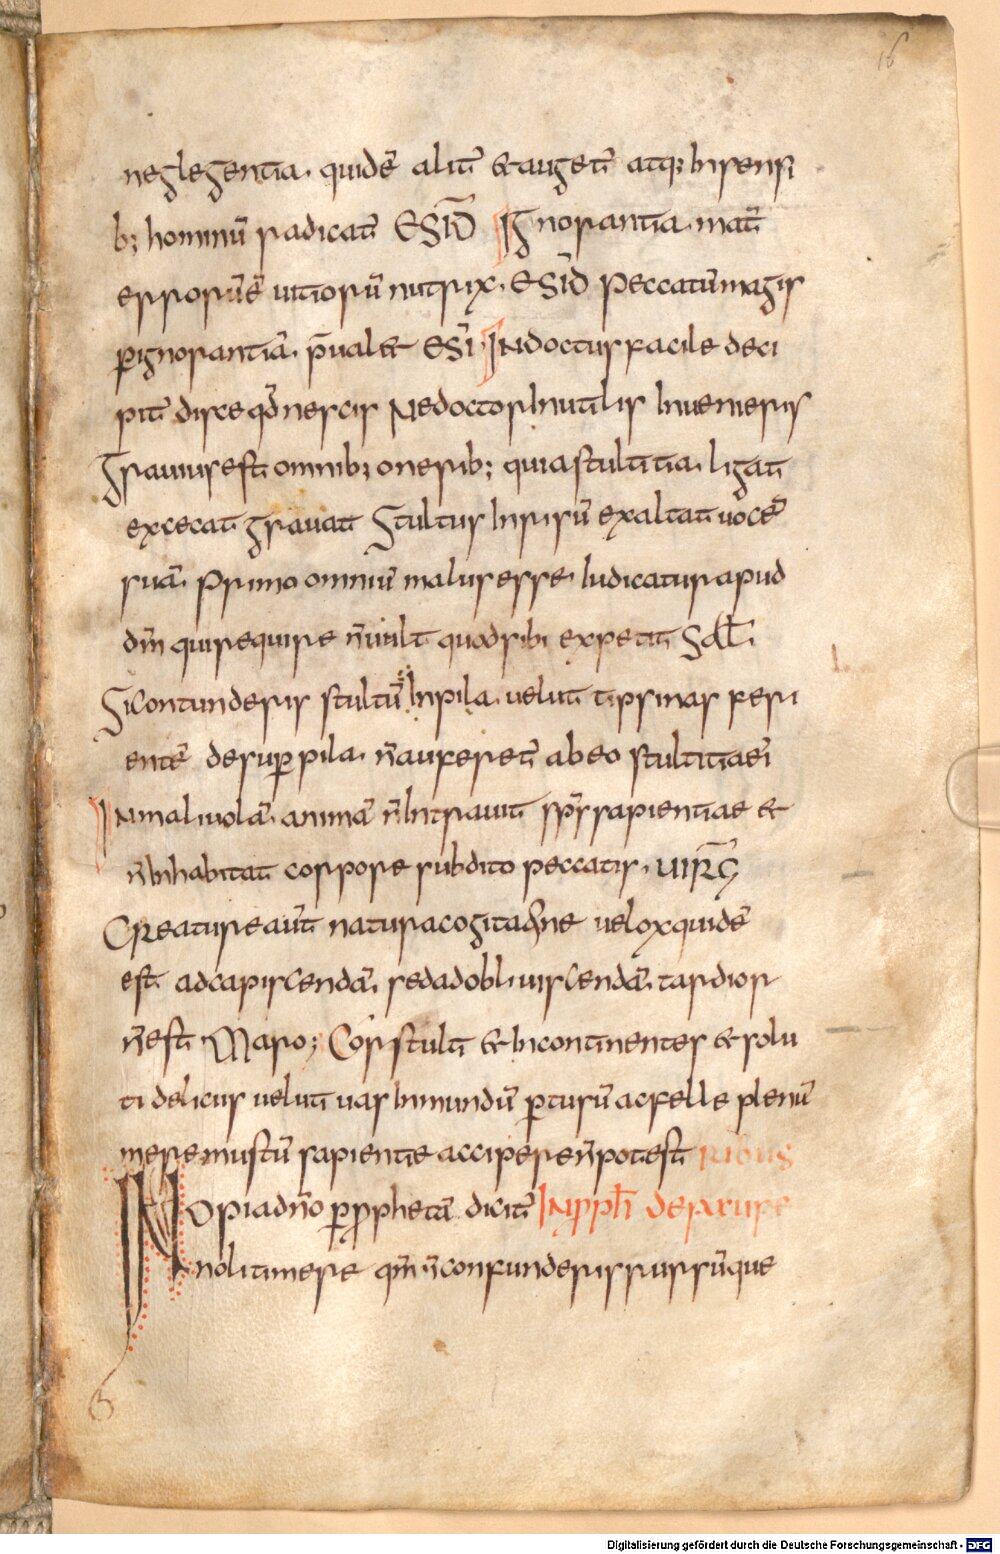 16
neglegentia. quidē alit̄ & auget̄ atq; insensi
b; hominū radicat̄ ESID̄ Ignorantia. mat̄
errorū ē uitiorū nutrix. ESID̄ Peccatū magis
ꝑignorantiā. p̄ual& ESĪ Indoctus facile deci
pit̄ disce qd̄ nescis Ne doctor inutilis inueniaris
Grauius est omnib; onerib; quia stultitia. ligat
excecat grauat Stultus in risū exaltat uocē
suā. Primo omniū malus esse iudicatur apud
dm̄ quisequire n̄ uult quod sibi expetit SaL̄.
Si contunderis stultū in pila. uelut tipsinas feri
entē desuꝑ pila. n̄ auferet̄ ab eo stultitia eī
In maliuolā. animā n̄ intrauit sp̄s sapientiae &
n̄ inhabitat corpore subdito peccatis. UIRḠ
Creature aūt natura cogitationē uelox quidē
est. ad capiscendā. sed ad obliuiscendā. tardior
n̄ est. Maro; Cor stulti & incontinentes & solu
ti delicus uelut uas inmundū ꝑtusū ac felle plenū
mere mustū sapientie accipere n̄ potest ribus
Nopia dn̄o ꝑprophetā dicit̄ In pph̄ de pauper
noli timere qm̄ n̄ confunderis rursūque
Digitalisierung gefördert durch die Deutsche Forschungsgemeinschaft - DFG